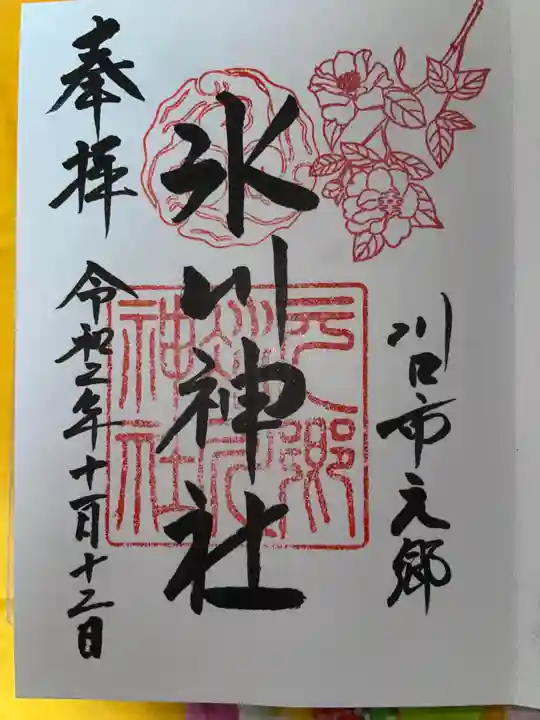 川口市元郷
氷川神社
元郷
氷川
神社
奉拝
令和二年十一月十二日